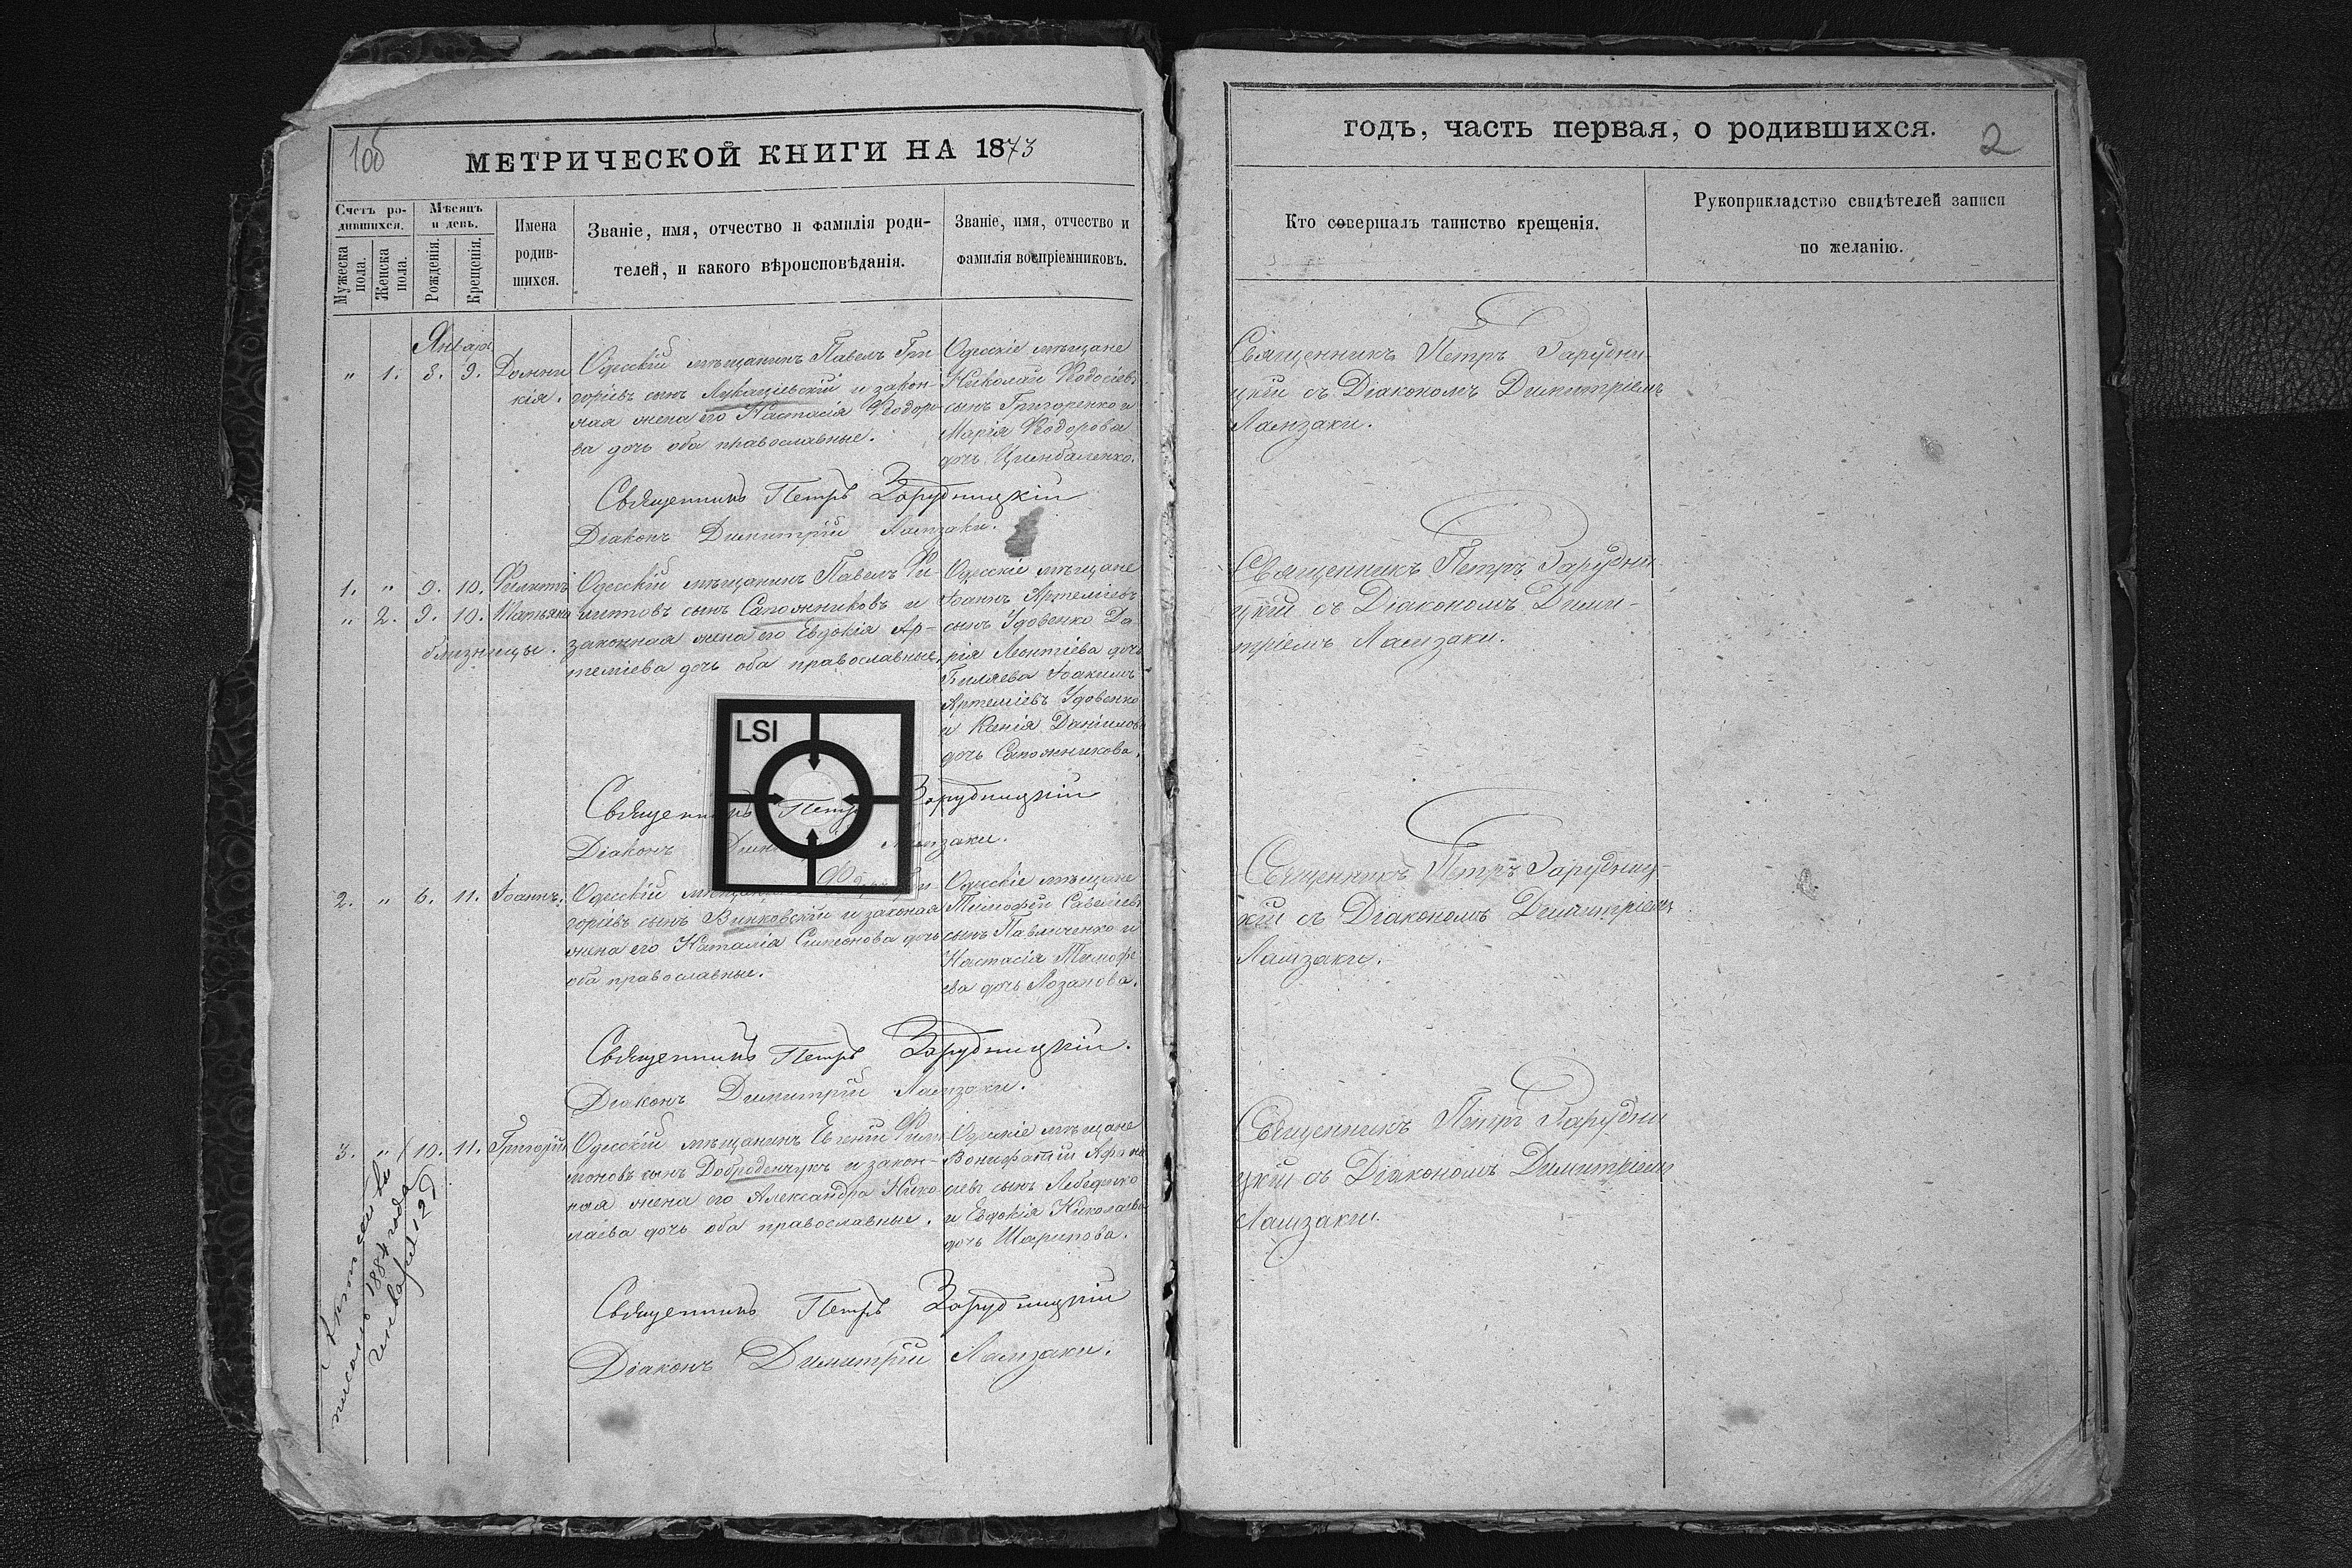 1об
МЕТРИЧЕСКОЙ КНИГИ НА 1873
Счетъ ро-
дившихся.
Мѣсяцъ
и день.
Мужеска
пола.
Женска
пола.
Рожденія.
Крещенія.
Имена
родив-
шихся.
Званіе, имя, отчество и фамилія роди-
телей, и какого вѣроисповѣданія.
Званіе, имя, отчество и
фамилія воспріемниковъ.
Январь
" 1. 8. 9. Домни
кія.
Одесскій мѣщанинъ Павелъ Гри
горіевъ сынъ Лукашевскій и закон
ная жена его Настасія Ѳеодоро
ва дочь оба православные.
Одесскіе мѣщане
Николай Ѳеодосіевъ
сынъ Григоренко и
Марія Ѳеодорова
дочь Цимбаленко.
Священникъ Петръ Зарудницкій
Діаконъ Димитрій Ламзаки.
1. " 9. 10. Филиппъ
" 2. 9. 10. Татьяна
близнецы.
Одесскій мѣщанинъ Павелъ Фи-
липповъ сынъ Сапожниковъ и
законная жена его Евдокія Ар-
теміева дочь оба православные.
Одесскіе мѣщане
Іоаннъ Артеміевъ
сынъ Удовенко Да
рія Леонтіева дочь
Биляева Іоакимъ
Артеміевъ Удовенко
и Ксенія Даніилова
дочь Сапожникова.
LSI
Священникъ Петръ Зарудницкій
Діаконъ Ламзаки.
2. " 6. 11. Іоаннъ.
Одесскій
горіевъ сынъ Винковскій и законая
жена его Наталія Симеонова дочь
оба православные.
Одесскіе мѣщане
Тимофей Савеліевъ
сынъ Павличенко и
Настасія Тимофе
ева дочь Лозанова.
Священникъ Петръ Зарудницкій.
Діаконъ Димитрій Ламзаки.
3. " 10. 11. Григорій
Одесскій мѣщанинъ Евгеній Фили
моновъ сынъ Доброденчукъ и закон-
ная жена его Александра Нико
лаева дочь оба православные.
Одесскіе мѣщане
Вонифатій Афана
сіевъ сынъ Лебеденко
и Евдокія Николаева
дочь Шарипова.
1884 года
Священникъ Петръ Зарудницкій
Діаконъ Димитрій Ламзаки.
годъ, часть первая, о родившихся.
2
Кто совершалъ таинство крещенія.
Рукоприкладство свидѣтелей записи
по желанію.
Священникъ Петръ Зарудни-
цкій съ Діакономъ Димитріемъ
Ламзаки.
Священникъ Петръ Зарудни
цкій съ Діакономъ Дими-
тріемъ Ламзаки.
Священникъ Петръ Зарудниц-
кій съ Діакономъ Димитріемъ
Ламзаки.
Священникъ Петръ Зарудни
цкій съ Діакономъ Димитріемъ
Ламзаки.